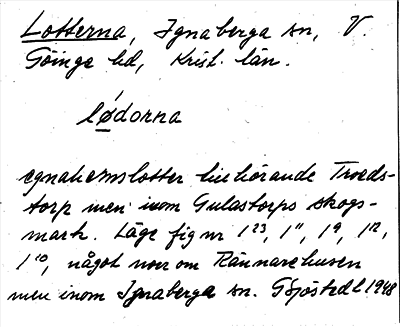 Lotterna, Ignaberga sn, V.
Göinge hd, Krist. län.
lødorna
egnahemslotter tillhörande Troeds-
torp men inom Gulastorps skogs-
mark. Läge fig nr 1²³, 1¹¹, 1⁹, 1¹²,
1¹⁰, något norr om Rännarehusen
men inom Ignaberga sn. G Sjöstedt 1948